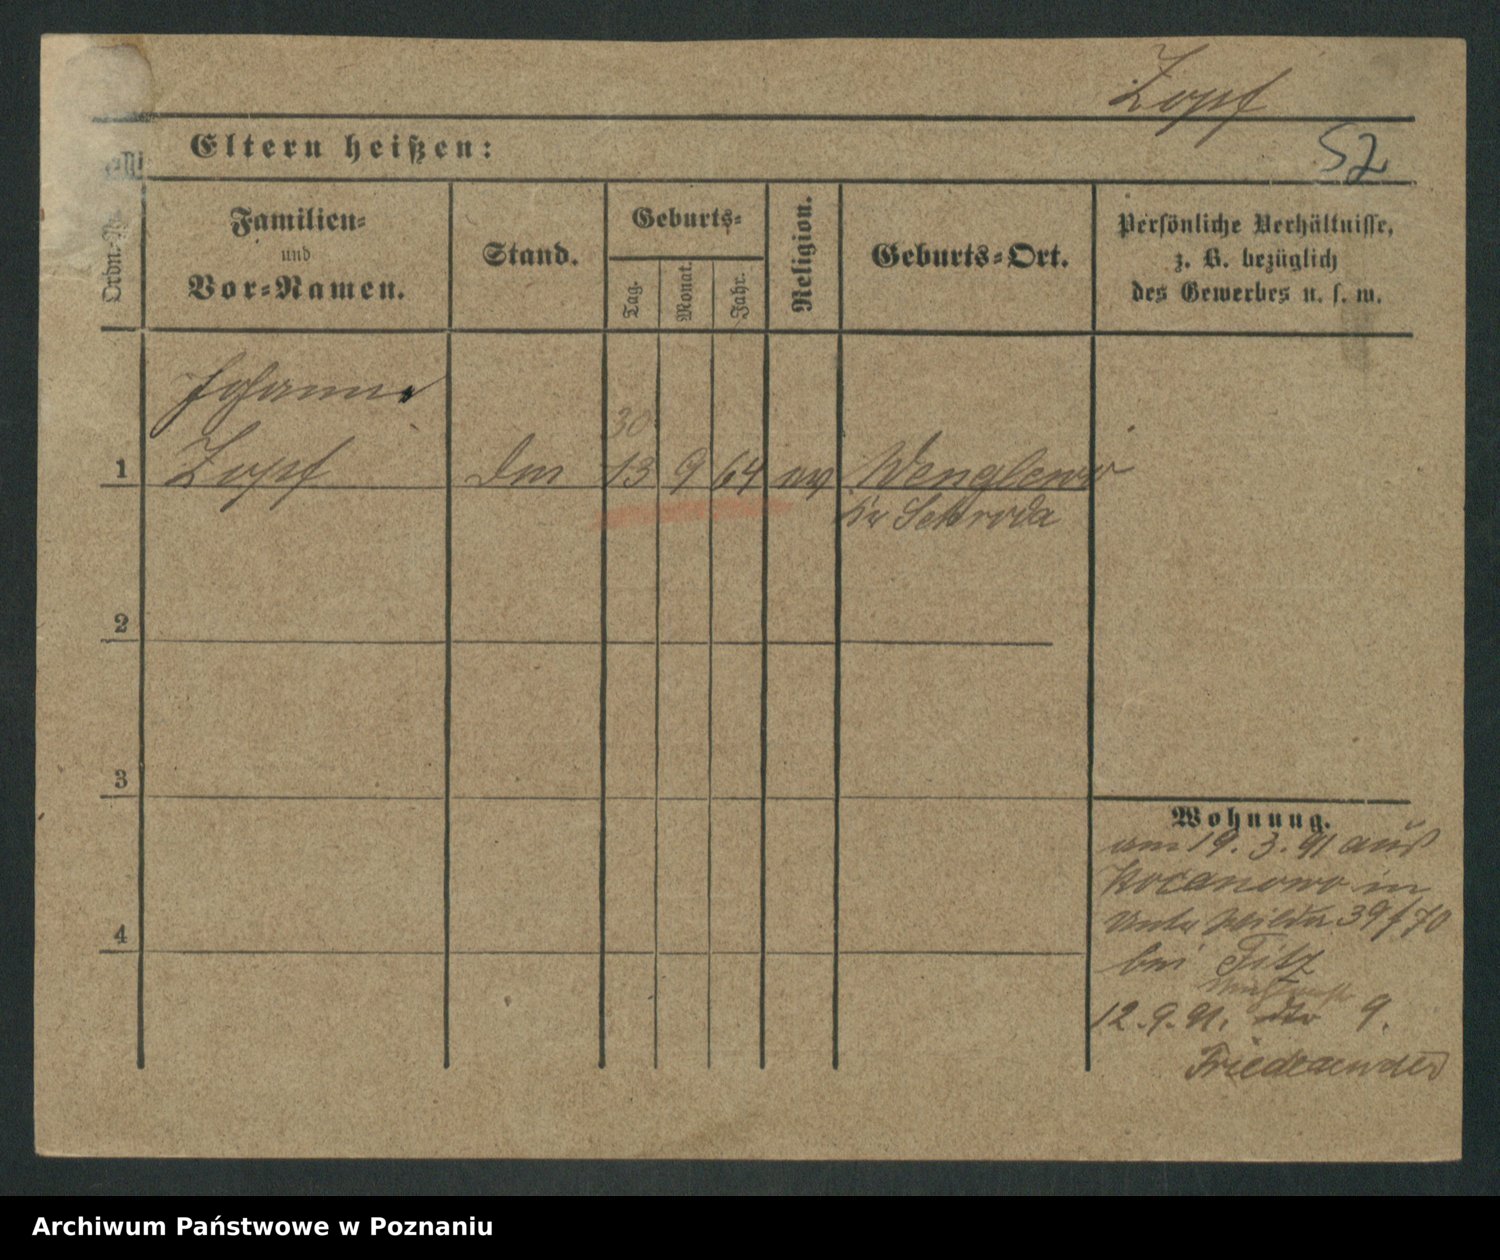 Zopf
52
Eltern heißen:
Ordn.-Nr.
Familien-
und
Vor-Namen.
Stand.
Geburts-
Tag.
Monat.
Jahr.
Religion.
Geburts-Ort.
Persönliche Verhältnisse,
z. B. bezüglich
des Gewerbes u. s. w.
Johanna
30
1 Zopf 13 9 64 ev Wenglewo
Kr Schroda
2
3
4
Wohnung.
am 19. 3. 91 aus
Kocanowo in
Unter Wilda 39/70
bei Titz
12. 9. 91. 9.
Friedlaender
Archiwum Państwowe w Poznaniu